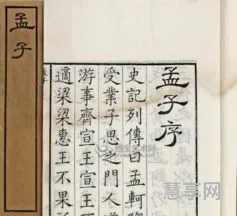 孟子
孟子序
史記列傳曰孟軻
受業子思之門人
游事齊宣王宣王
適梁梁惠王不果
慧享网